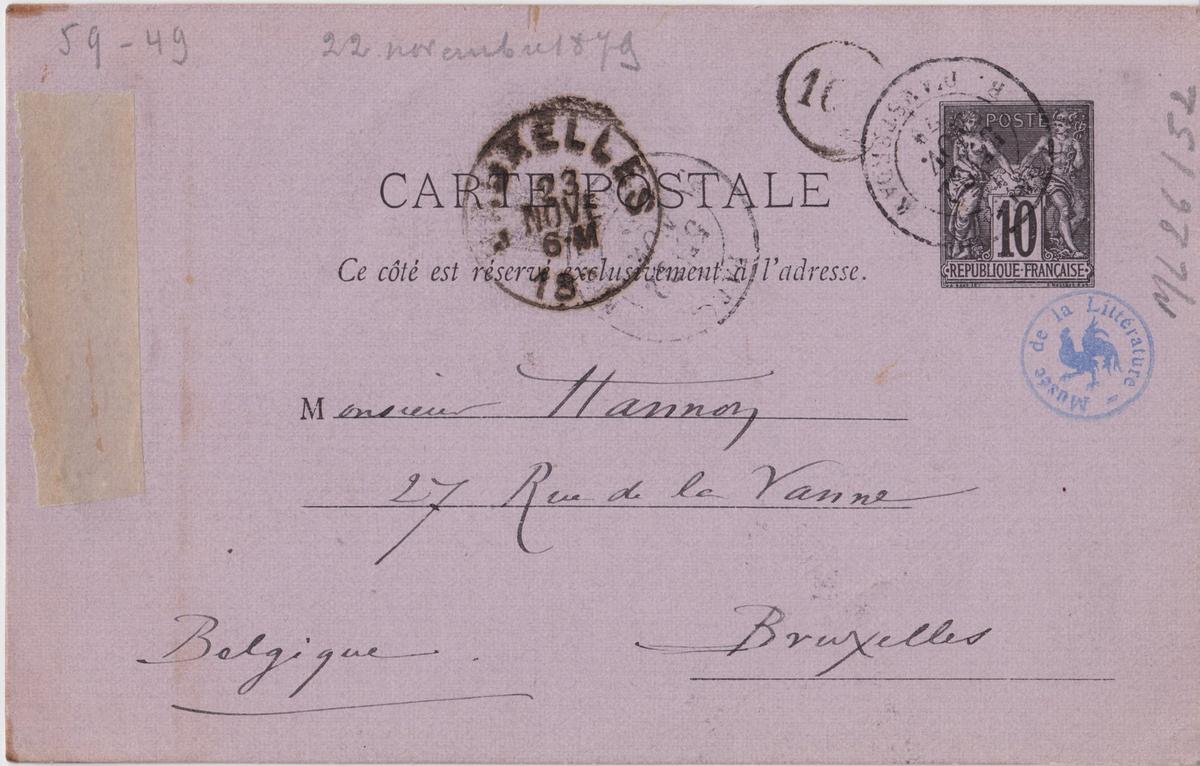 59-49
22 novembre 1879
10
POSTES
10
REPUBLIQUE·FRANÇAISE
BRUXELLES
23
NOVE
6-M
18
CARTE POSTALE
Ce côté est réservé exclusivement à l'adresse.
ML 26/157
Musée de la Littérature
Monsieur Hannon
27 Rue de la Vanne
Bruxelles
Belgique